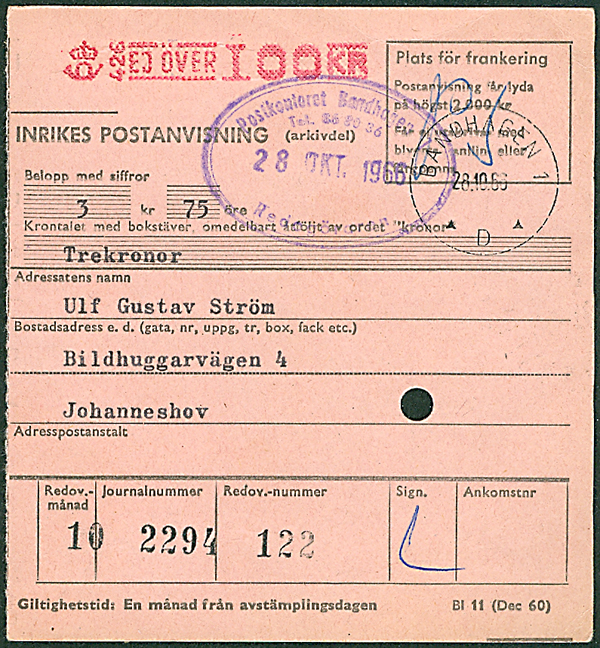 426 EJ ÖVER 100 KR
Plats för frankering
Postanvisning får lyda
på högst 2.000 kr.
INRIKES POSTANVISNING (arkivdel)
Postkontoret Bandhagen 1
Tel. 86 80 36
28 OKT. 1966
BANDHAGEN 1
28.10.66
D
Belopp med siffror
3 kr 75 öre
Krontalet med bokstäver, omedelbart åtföljt av ordet "kronor"
Trekronor
Adressatens namn
Ulf Gustav Ström
Bostadsadress e. d. (gata, nr, uppg, tr, box, fack etc.)
Bildhuggarvägen 4
Johanneshov
Adresspostanstalt
Redov.-månad Journalnummer Redov.-nummer Sign. Ankomstnr
10 2294 122
Giltighetstid: En månad från avstämplingsdagen Bl 11 (Dec 60)